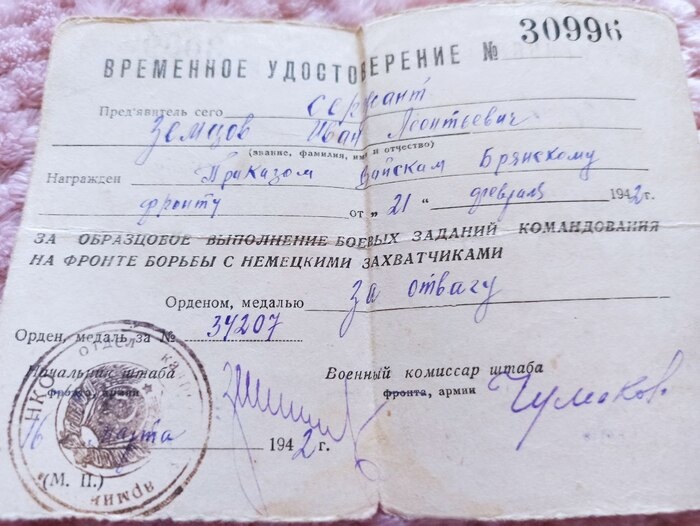 30996
ВРЕМЕННОЕ УДОСТОВЕРЕНИЕ №
Пред'явитель сего сержант
Земцов Иван Леонтьевич
(звание, фамилия, имя и отчество)
Награжден Приказом Войскам Брянскому
фронту от „ 21 “ февраля 1942г.
ЗА ОБРАЗЦОВОЕ ВЫПОЛНЕНИЕ БОЕВЫХ ЗАДАНИЙ КОМАНДОВАНИЯ
НА ФРОНТЕ БОРЬБЫ С НЕМЕЦКИМИ ЗАХВАТЧИКАМИ
Орденом, медалью За отвагу
Орден, медаль за № 34207
Начальник штаба Военный комиссар штаба
фронта, армии фронта, армии
Чумаков
16 марта 1942г.
(М. П.)
НКО отдел армии